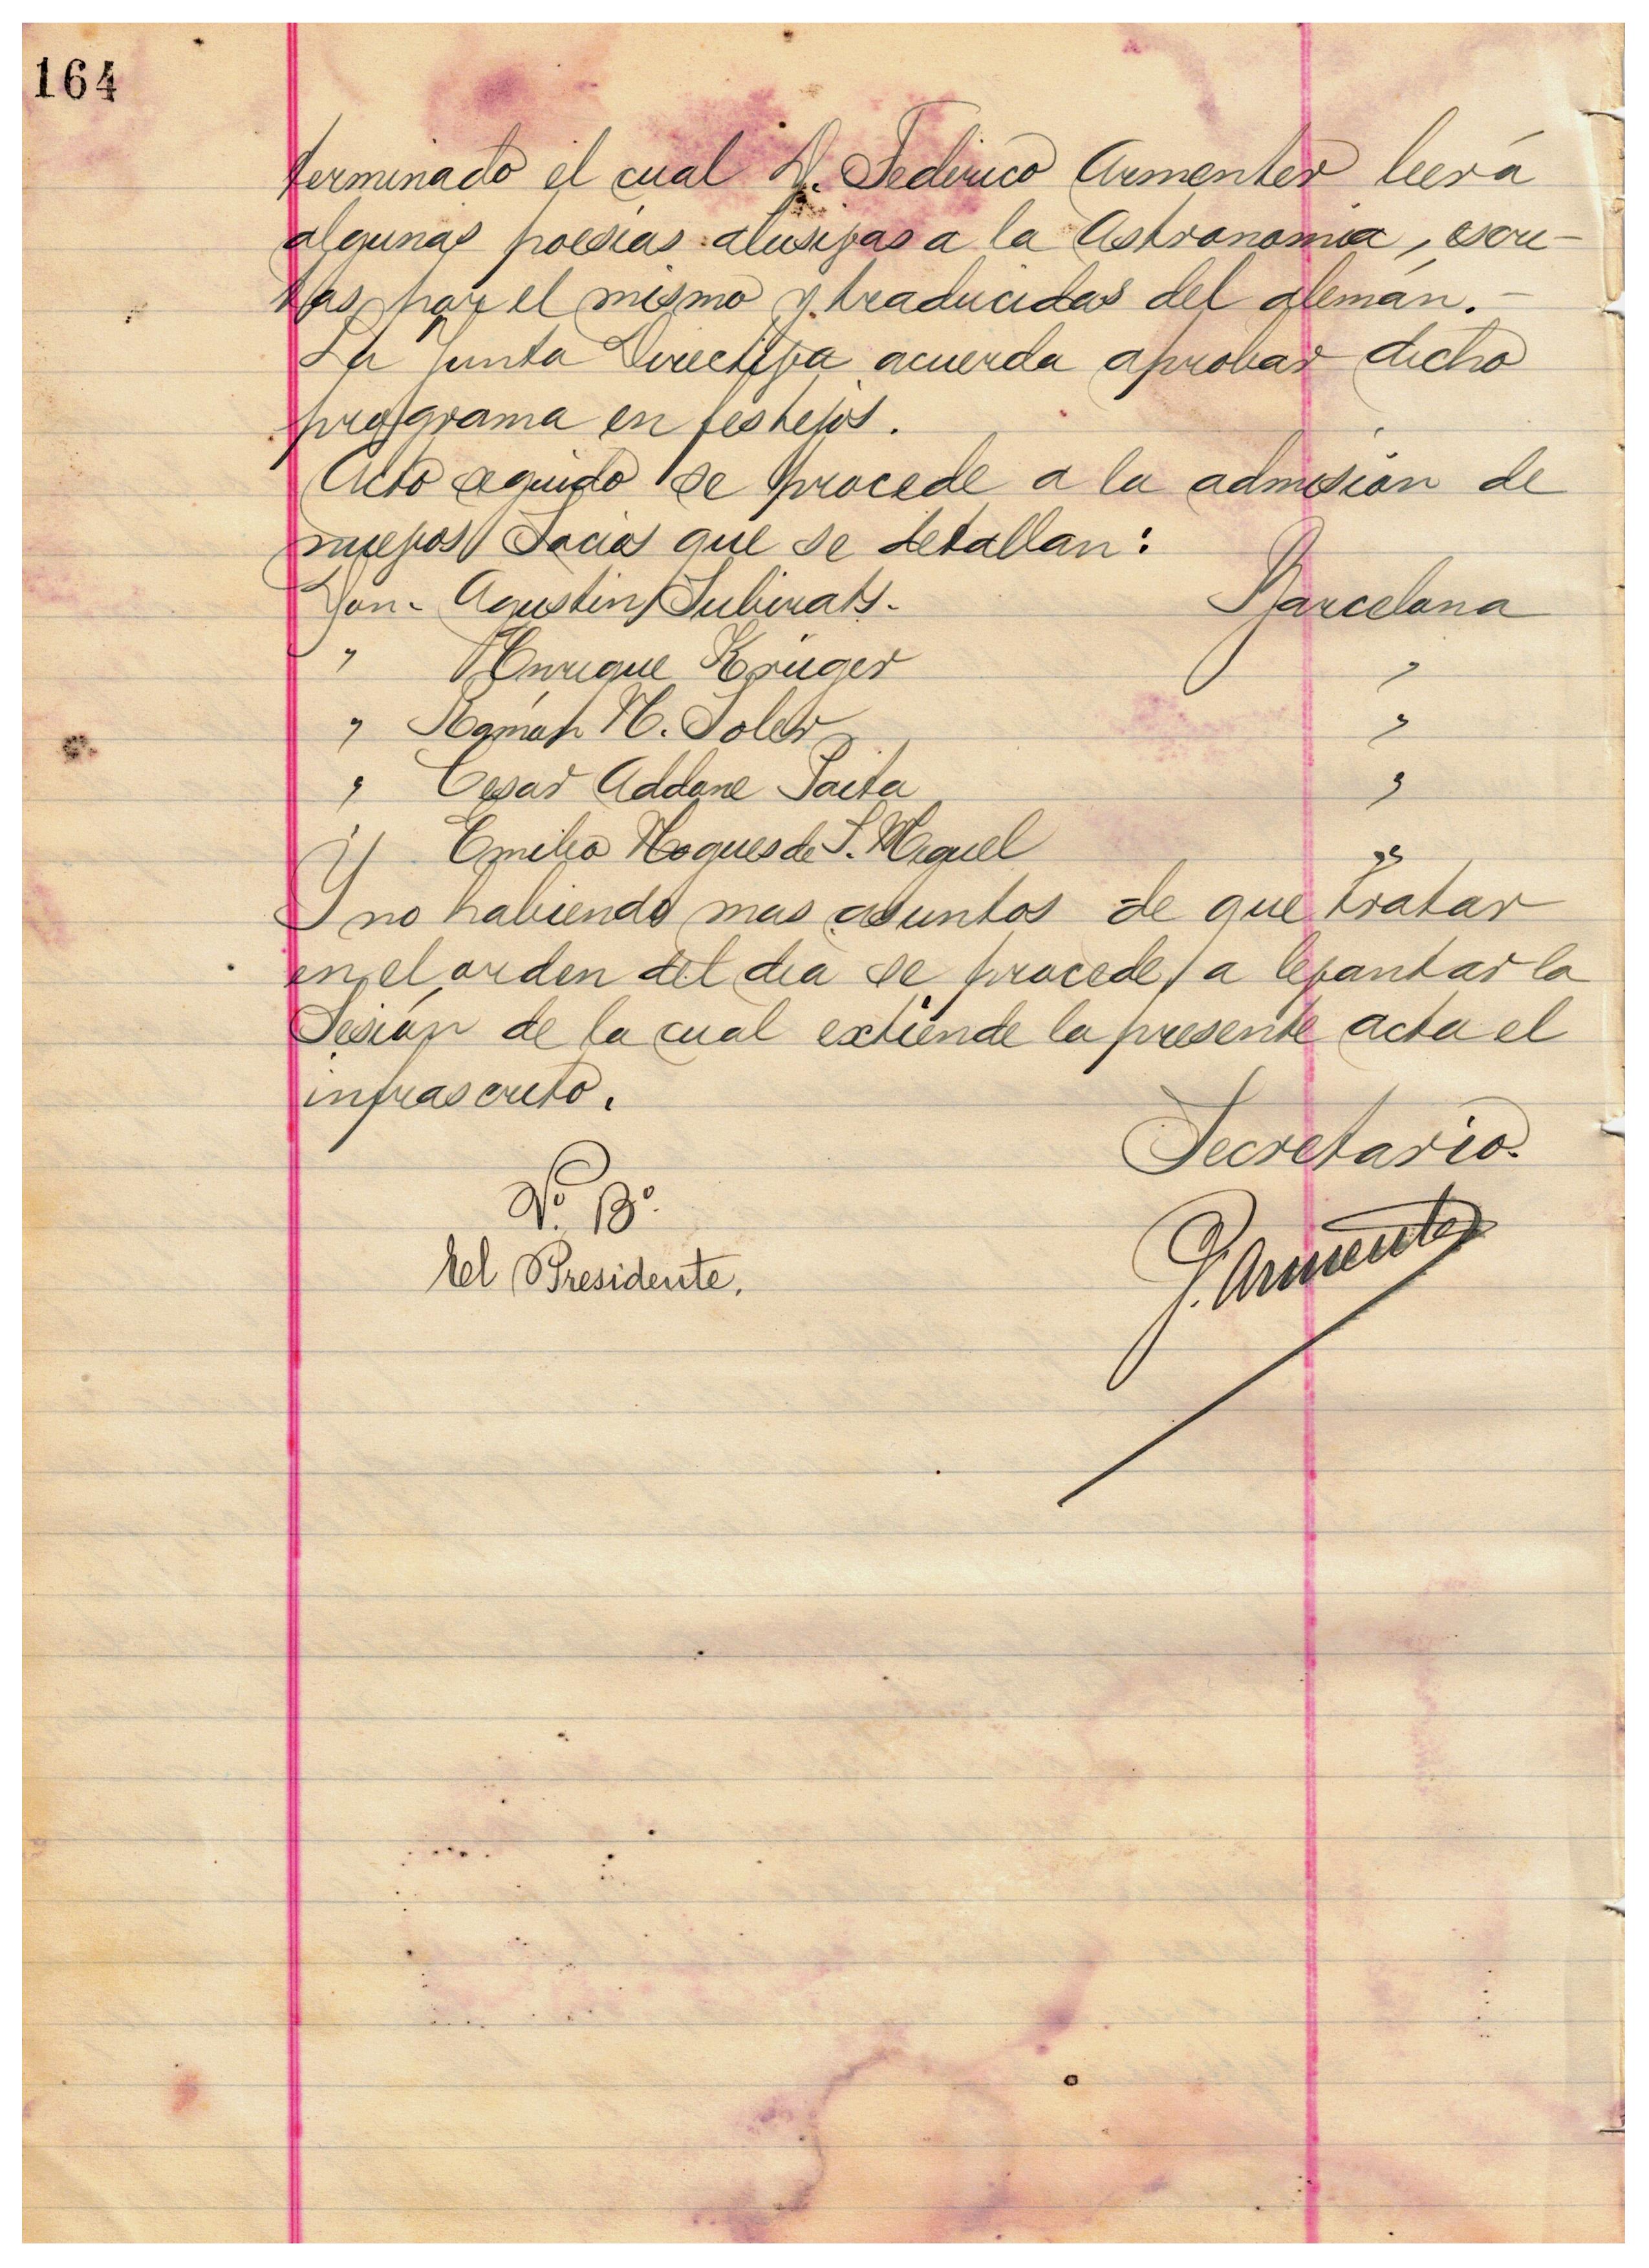 164
terminado el cual D. Federico Armenter leerá
algunas poesías alusivas a la Astronomia, escri-
tas por el mismo y traducidas del alemán.-
La Junta Directiva acuerda aprobar dicho
programa en festejos.
Acto seguido se procede a la admisión de
nuevos Socios que se detallan:
Don- Agustin Subirats.- Barcelona
" Enrique Krüger "
" Ramón M. Soler "
" Cesar Addone "
" Emilio Nogues de S. Miguel "
Y no habiendo mas asuntos de que tratar
en el orden del dia se procede a levantar la
Sesión de la cual extiende la presente acta el
infrascrito.
Secretario.
Vº. Bº.
El Presidente,
F. Armenter